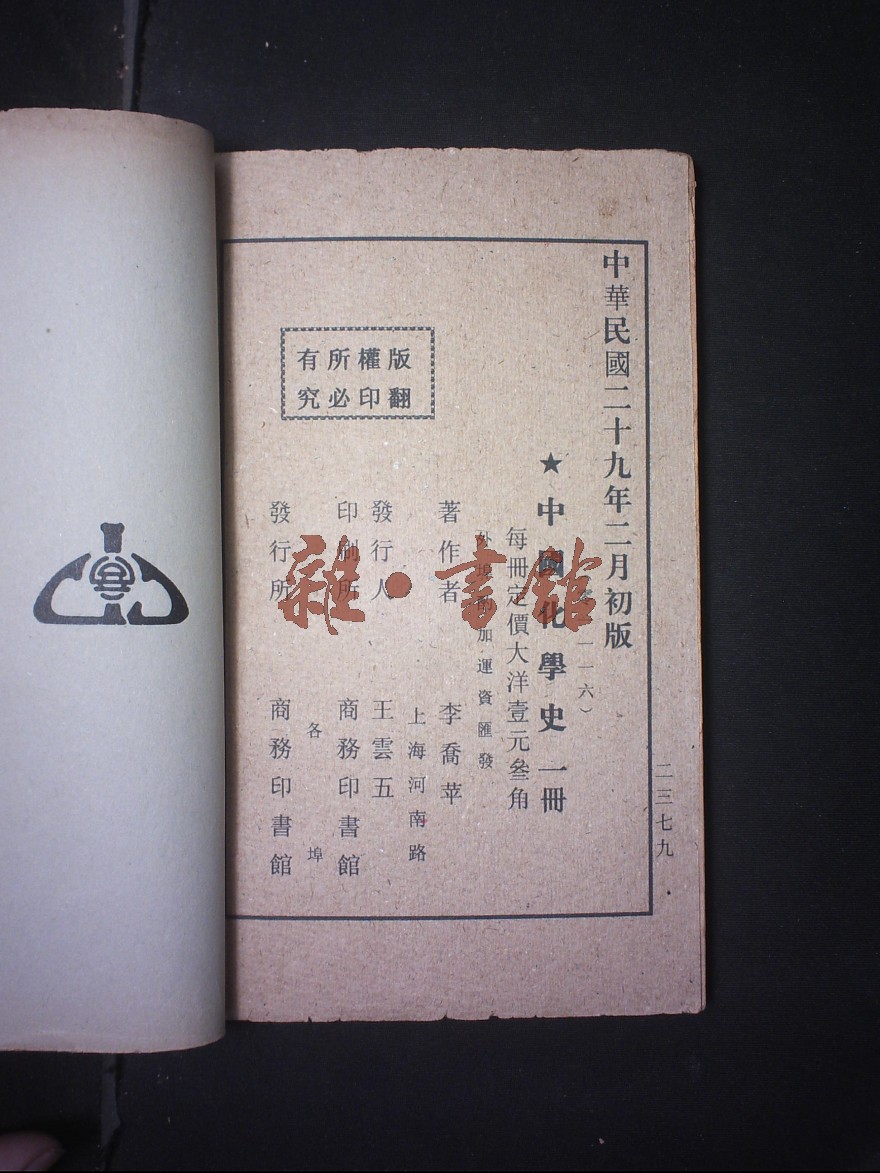 中華民國二十九年二月初版
二三七九
一一六）
★中國化學史一冊
每冊定價大洋壹元叁角
外埠酌加運資匯發
版權所有
翻印必究
著作者 李喬苹
上海河南路
發行人 王雲五
印刷所 商務印書館
各埠
發行所 商務印書館
雜·書館